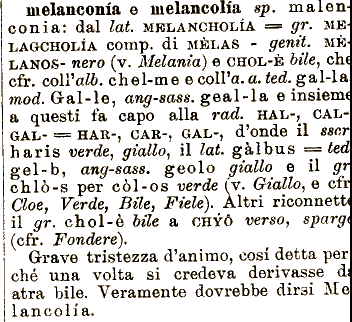 melanconía e melancolía sp. malen-
conia: dal lat. MELANCHOLÍA = gr. ME-
LAGCHOLÍA comp. di MÈLAS - genit. MÈ-
LANOS- nero (v. Melania) e CHOL-È bile, che
cfr. coll'alb. chel-me e coll'a. a. ted. gal-la
mod. Gal-le, ang-sass. geal-la e insieme
a questi fa capo alla rad. HAL-, CAL-
GAL- = HAR-, CAR-, GAL-, d'onde il sscr
haris verde, giallo, il lat. gàlbus = ted
gel-b, ang-sass. geolo giallo e il gr
chlò-s per còl-os verde (v. Giallo, e cfr
Cloe, Verde, Bile, Fiele). Altri riconnette
il gr. chol-è bile a CHÝÔ verso, spargo
(cfr. Fondere).
Grave tristezza d'animo, cosí detta per
ché una volta si credeva derivasse da
atra bile. Veramente dovrebbe dirsi Me
lancolía.